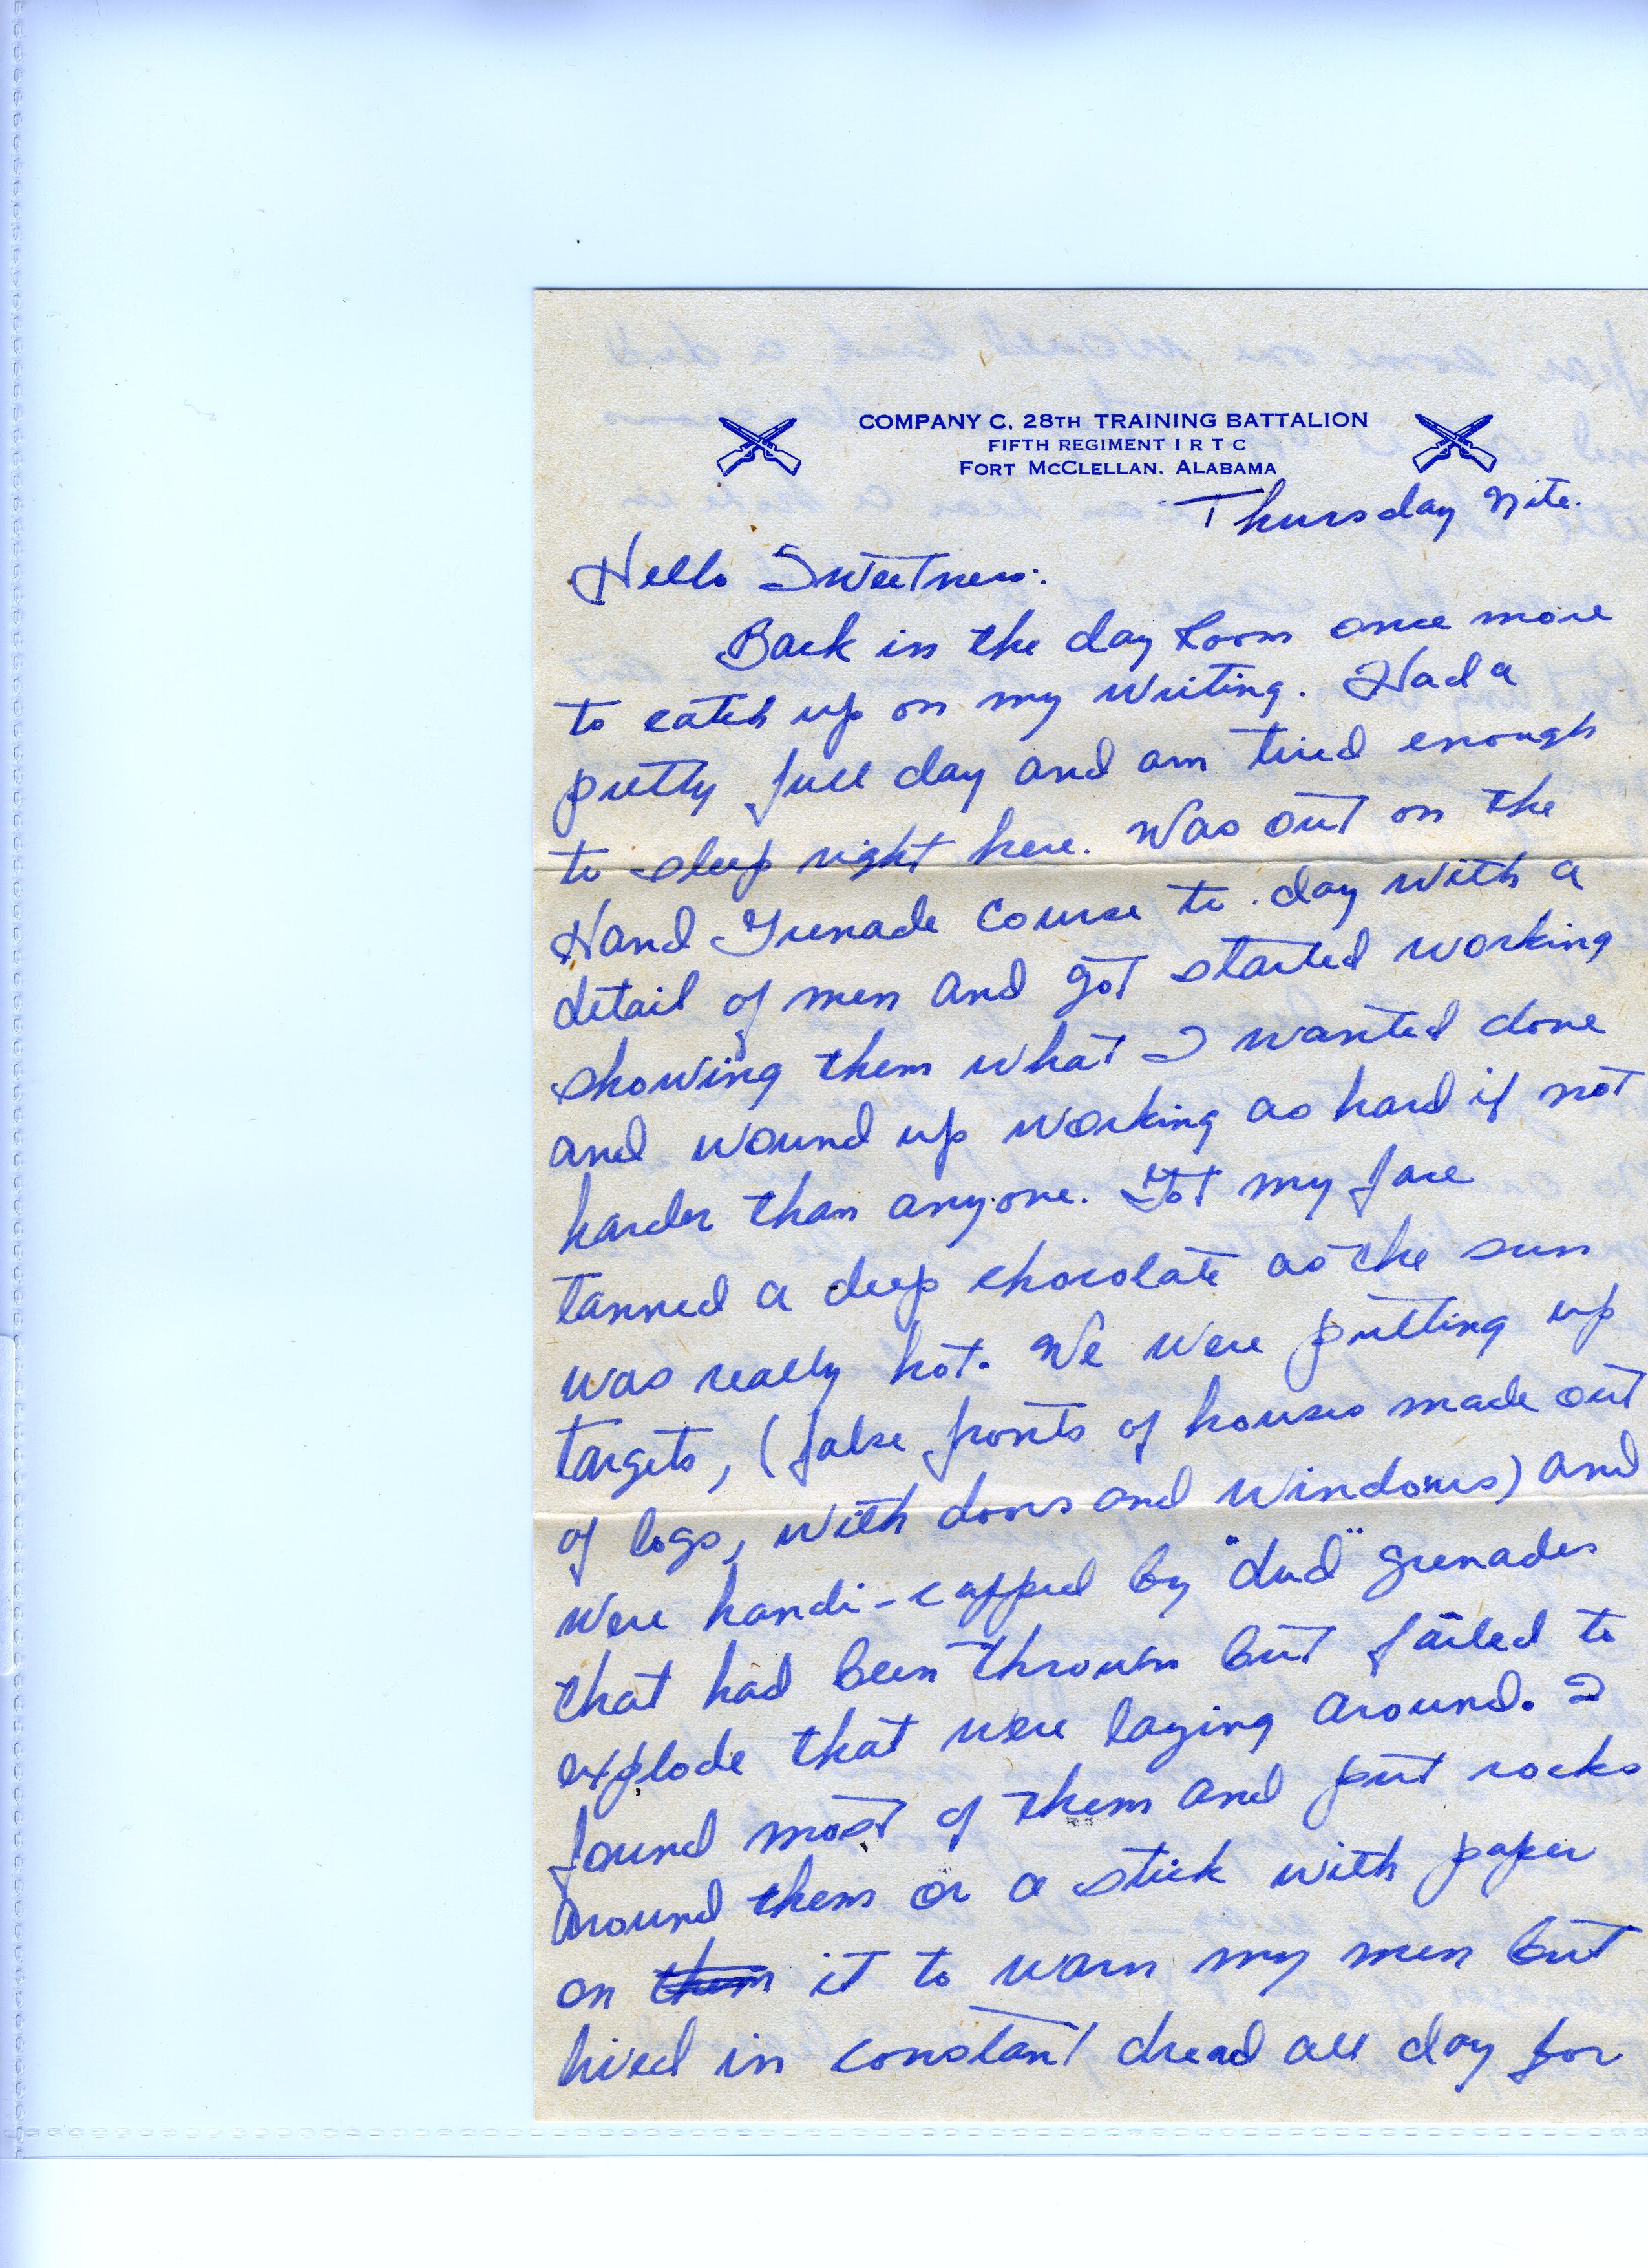 COMPANY C, 28TH TRAINING BATTALION
FIFTH REGIMENT I R T C
FORT MCCLELLAN, ALABAMA
Thursday Nite.
Hello Sweetness:
Back in the day Room once more
to catch up on my writing. Had a
pretty full day and am tired enough
to sleep right here. Was out on the
Hand Grenade Course to-day with a
detail of men and got started working
showing them what I wanted done
and wound up working as hard if not
harder than anyone. Got my face
tanned a deep chocolate as the sun
was really hot. We were putting up
targets, (false fronts of houses made out
of logs, with doors and windows) and
were handi-capped by "dud" grenades
that had been thrown but failed to
explode that were laying around. I
found most of them and put rocks
around them or a stick with paper
on them it to warn my men but
lived in constant dread all day for